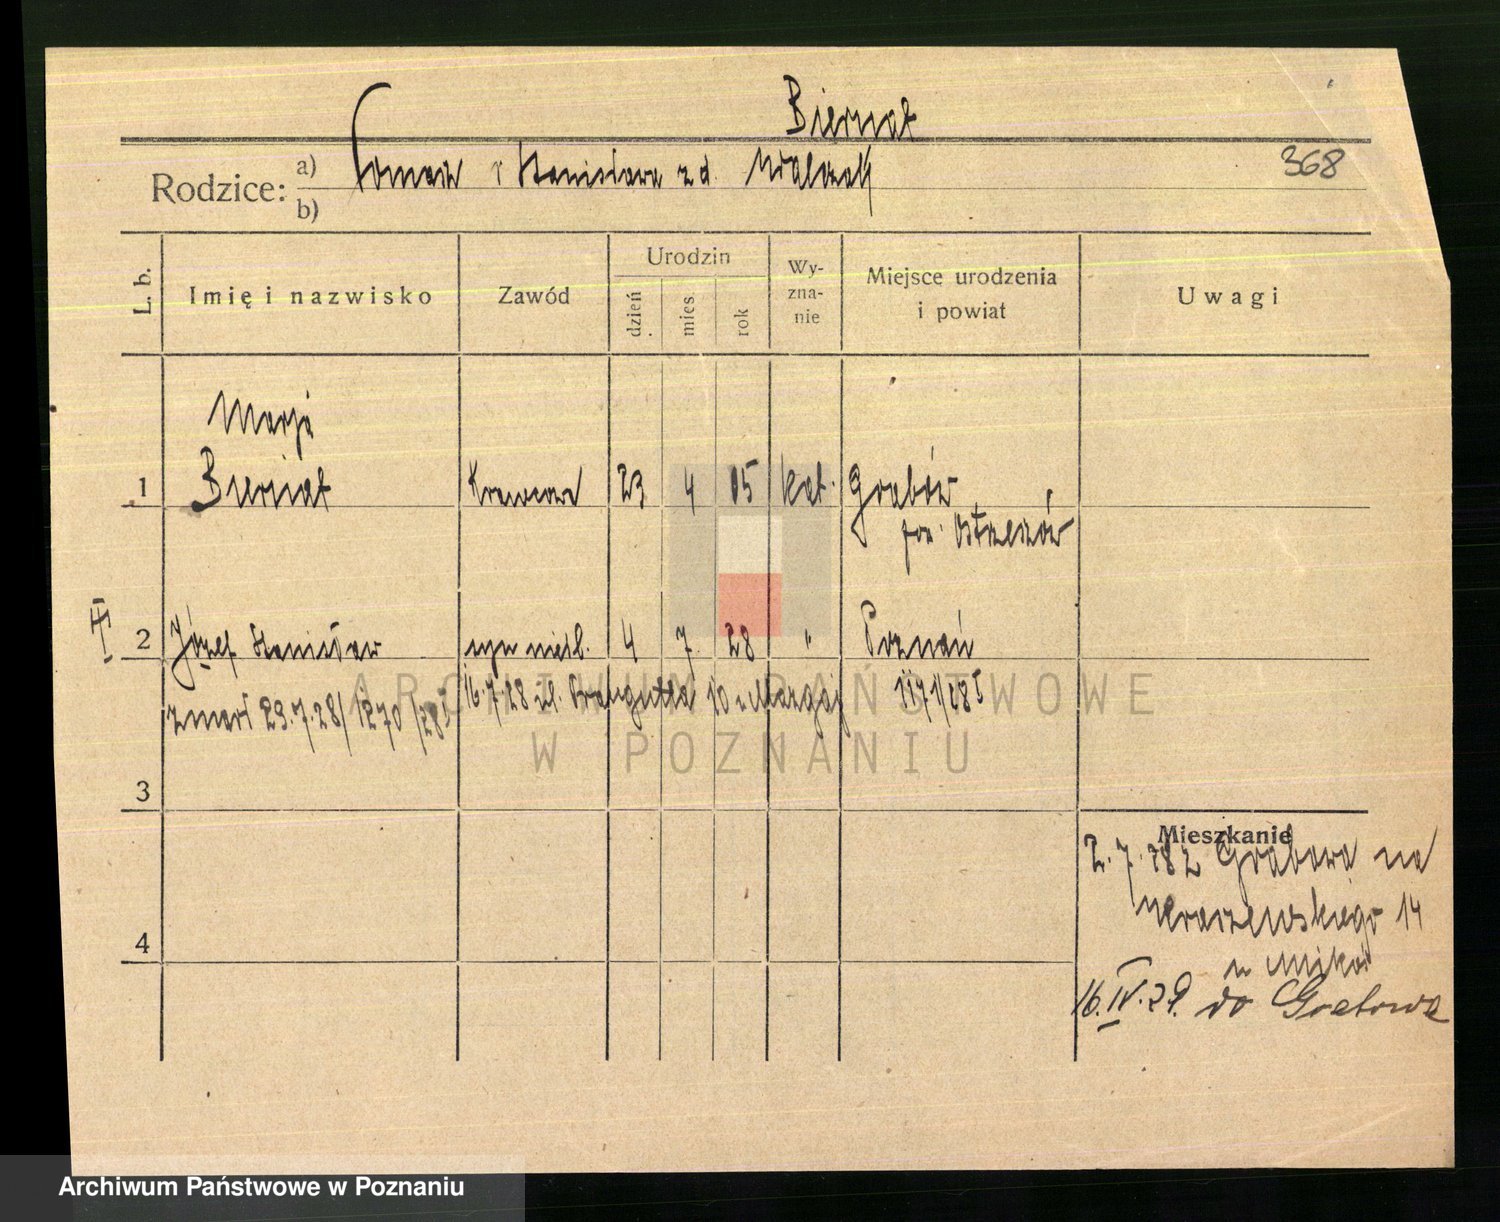 Biernat
Rodzice: a) Tomasz i Stanisława z d. Walczak 368
b)
L. b. Imię i nazwisko Zawód Urodzin dzień mies. rok Wy-zna-nie Miejsce urodzenia i powiat Uwagi
Marja
1 Biernat Krawcowa 23 4 05 kat. Grabów
pow. Ostrzeszów
2 Józef Stanisław syn nieśl. 4 7. 28 " Poznań
16.7.28 ul. 10 1171/285
zmarł 29.7.28/1270/285
3
Mieszkanie
2.7.28 z Grabowa na
14
4
u
16.IV.29. do Grabowa
ARCHIWUM PAŃSTWOWE
W POZNANIU
Archiwum Państwowe w Poznaniu